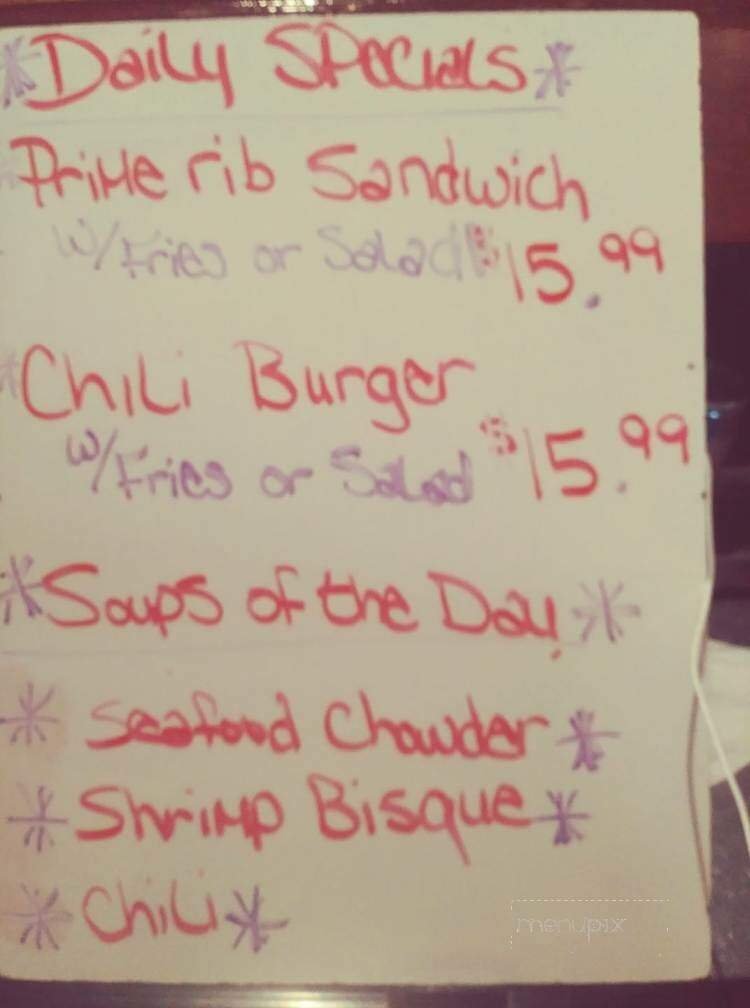 *Daily Specials*
Prime rib Sandwich
w/Fries or Salad $15.99
Chili Burger
w/Fries or Salad $15.99
*Soups of the Day*
* Seafood Chowder *
* Shrimp Bisque *
* Chili *
menupix